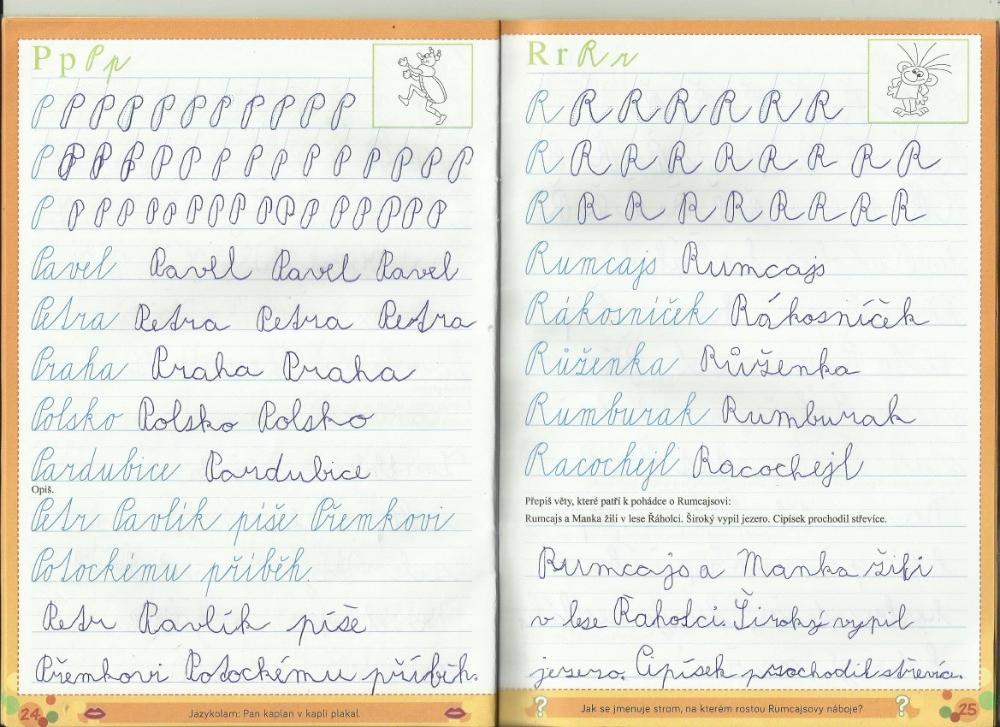 P p P p
P P P P P P P P P P P
P P P P P P P P P P P P P P P
P P P P P P P P P P P P P P P
Pavel Pavel Pavel Pavel
Petra Petra Petra Petra
Praha Praha Praha
Polsko Polsko Polsko
Pardubice Pardubice
Opiš.
Petr Pavlík píše Přemkovi
Potockému příběh.
Petr Pavlík píše
Přemkovi Potockému příběh.
24 Jazykolam: Pan kaplan v kapli plakal.
R r R r
R R R R R R R
R R R R R R R R R
R R R R R R R R R
Rumcajs Rumcajs
Rákosníček Rákosníček
Růženka Růženka
Rumburak Rumburak
Racochejl Racochejl
Přepiš věty, které patří k pohádce o Rumcajsovi:
Rumcajs a Manka žili v lese Řáholci. Široký vypil jezero. Cipísek prochodil střevíce.
Rumcajs a Manka žili
v lese Řaholci. Široký vypil
jezero. Cipísek prochodil střevíc.
Jak se jmenuje strom, na kterém rostou Rumcajsovy náboje? 25